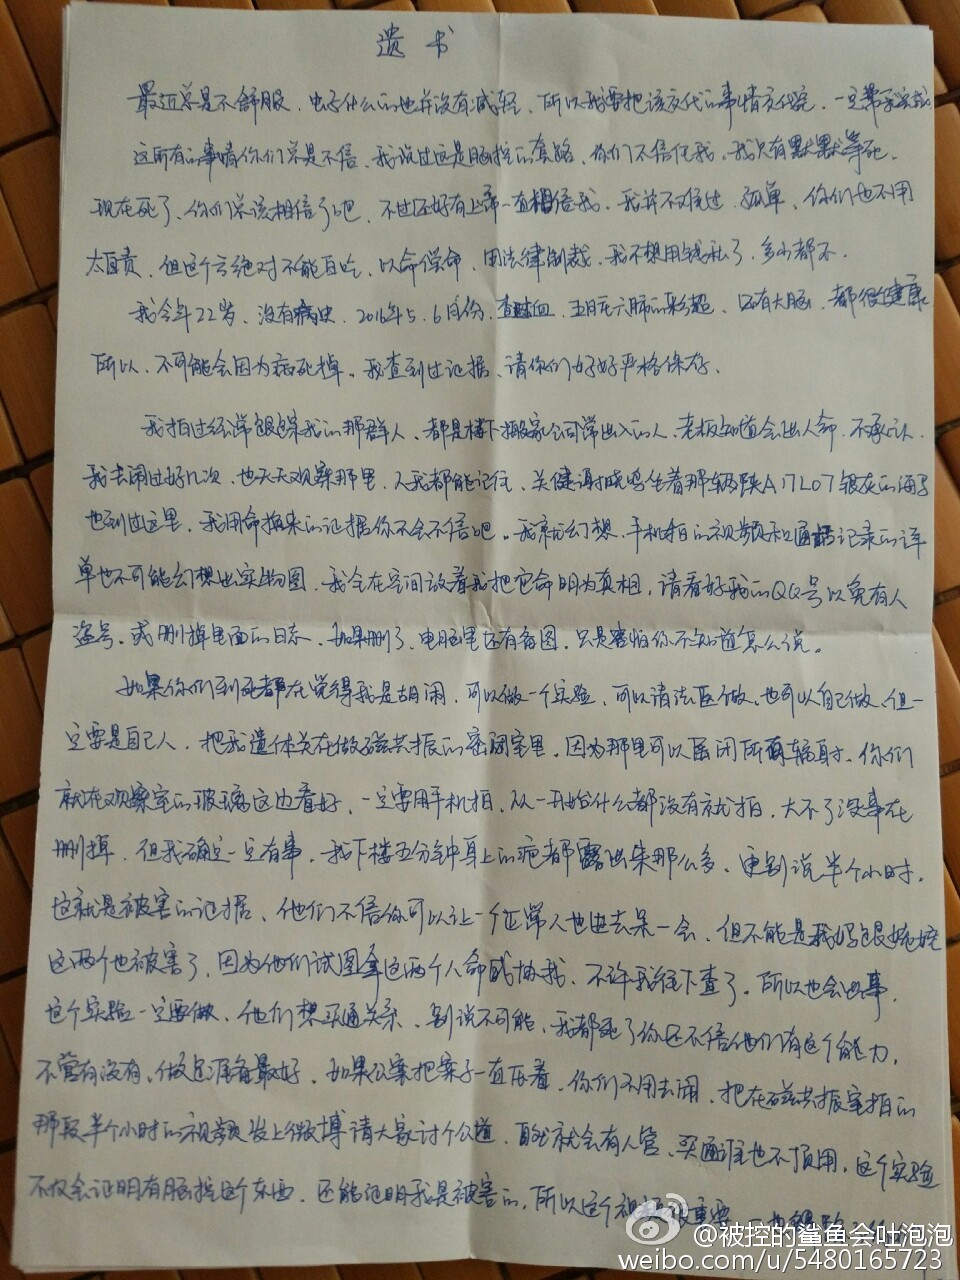 遗书
最近总是不舒服、电子什么的也并没有减轻、所以我要把该交代的事情交代完、一定帮我
这所有的事情你们总是不信、我说过这是脑控的套路、你们不信任我、我只有默默等死、
现在死了、你们总该相信了吧、不过还好有上帝一直相信我、我并不仅过孤单、你们也不用
太自责、但这个亏绝对不能白吃、以命偿命、用法律制裁、我不想用钱私了、多少都不、
我今年22岁、没有病史、2016年5、6月份、查过血、五月在六肺的彩超、还有大脑、都很健康
所以、不可能会因为病死掉。我查到过证据、请你们好好严格保存、
我拍过经常跟踪我的那群人、都是楼下搬家公司常出入的人、老板知道会出人命、不承认、
我去闹过好几次、也天天观察那里、人我都能记住、关健谢晓鸣坐着那辆陕A17L07银灰的海马
也到过这里、我用命换来的证据你不会不信吧。我就说幻想、手机拍的视频和通话记录的详
单也不可能幻想出实物图、我会在空间放着我把它命明为真相、请看好我的QQ号以免有人
盗号、或删掉里面的日志、如果删了、电脑里还有备图、只是害怕你不知道怎么说。
如果你们到死都在觉得我是胡闹、可以做一个实验、可以请法医做、也可以自己做、但一
定要是自己人、把我遗体关在做磁共振的密闭室里、因为那里可以屏闭所有辐射、你们
就在观察室的玻璃这边看好、一定要用手机拍、从一开始什么都没有就拍、大不了没事在
删掉、但我确定一定有事、我下楼五分钟身上的疤都露出来那么多、更别说半个小时、
这就是被害的证据、他们不信你可以让一个正常人也进去呆一会、但不能是我妈跟婉婉
这两个也被害了、因为他们试图拿这两个人命威协我、不许我往下查了、所以也会出事、
这个实验一定要做、他们想买通关系、别说不可能、我都死了你还不信他们有这个能力、
不管有没有、做足准备最好、如果公案把案子一直压着、你们不用去闹、把在磁共振室拍的
那段半个小时的视频发上微博请大家讨个公道、自然就会有人管、买通谁也不顶用、这个实验
不仅会证明有脑控这个东西、还能证明我是被害的、所以这个视频很重要、一
@被控的鲨鱼会吐泡泡
weibo.com/u/5480165723